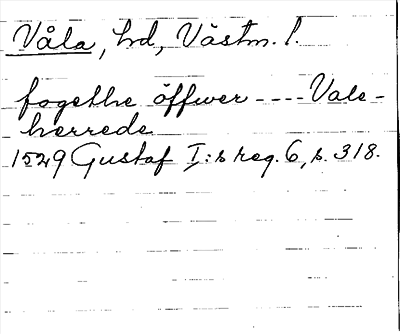 Våla, hd, Västm. l.
fogetthe öffwer ---- Vale-
herrede
1529 Gustaf I:s reg. 6, s. 318.